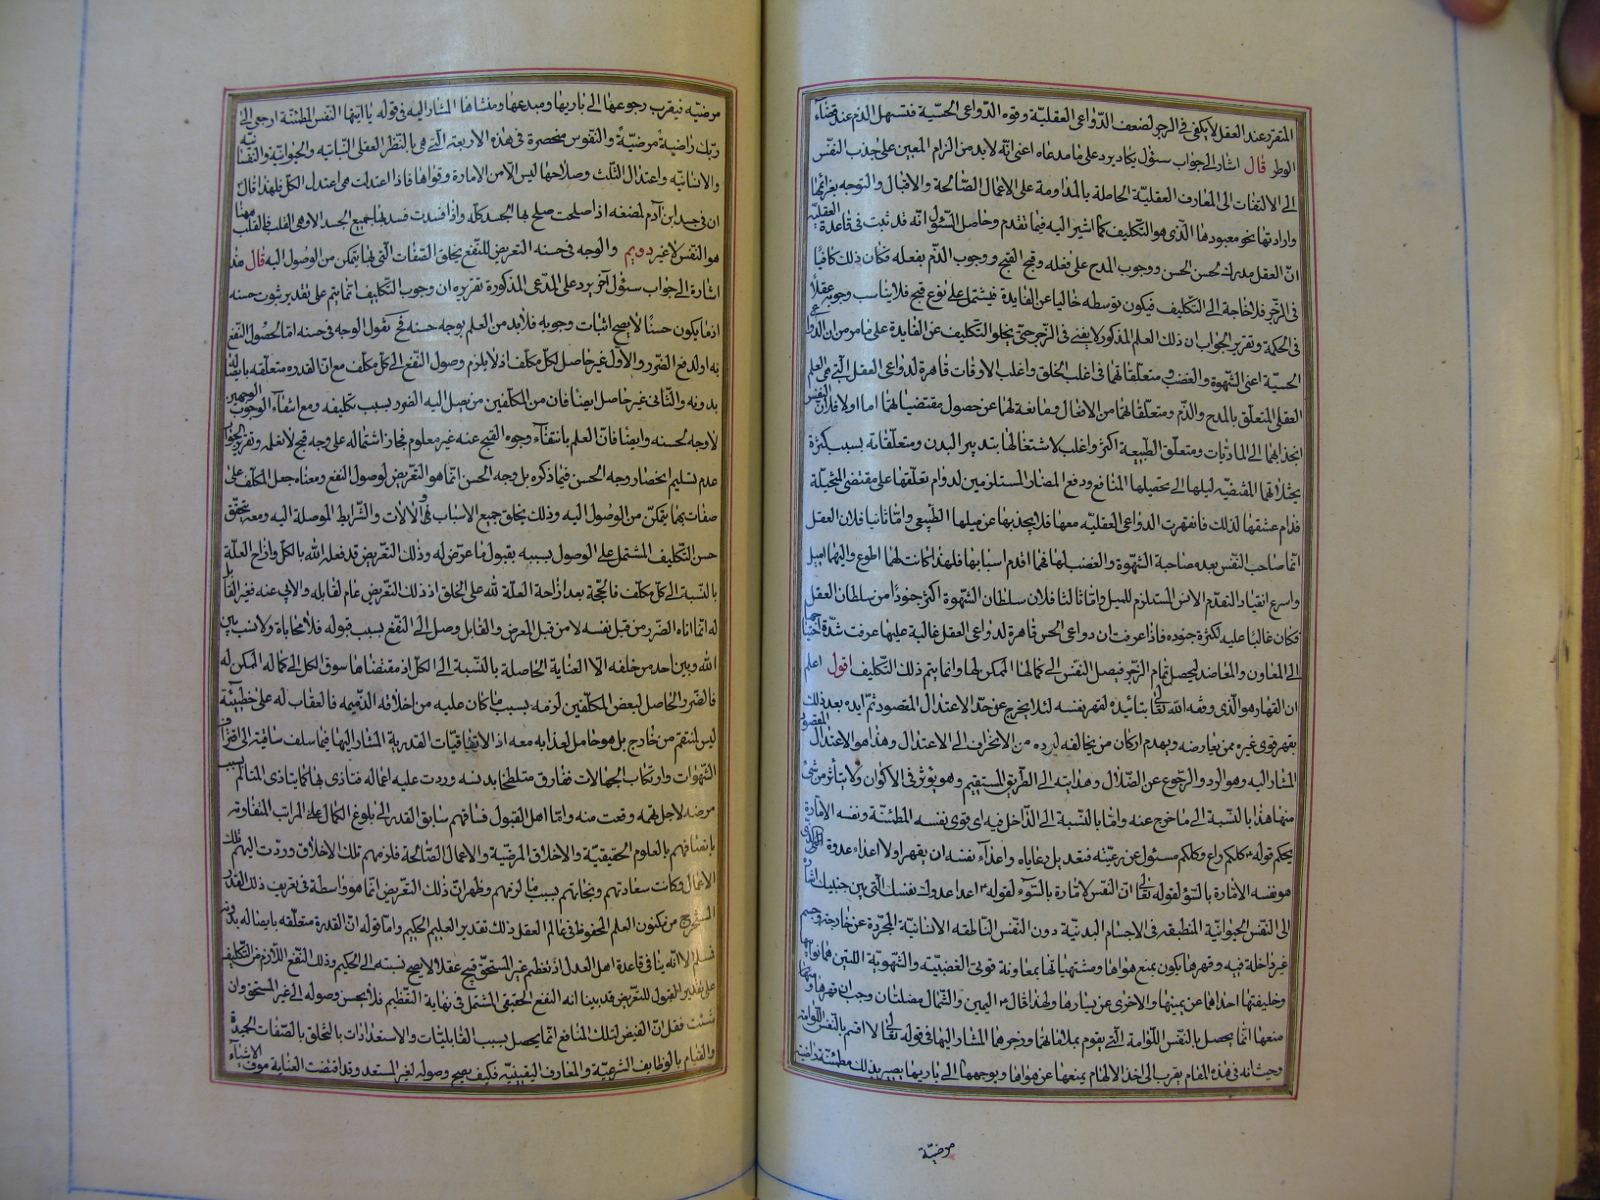 المتفرد عند العقل لا يكفى فى الزجر لضعف الدّواعى العقليّة وقوه الدّواعى الحسيّة فتسهل الذم عند قضآء
الوطر قال اشار الى جواب سئول يكاد يرد على ما مدعاه اعنى انّه لا بد من الزام المعين على جذب النّفس
الى الالتفات الى المعارف العقليّة الحاصلة بالمداومة على الاعمال الصّالحة والاقبال والتوجه
وارادتها نحو معبودها الّذى هو التكليف كما اشير اليه فيما تقدم وحاصل السّئول انّه قد ثبت فى قاعدة العقليّة
انّ العقل مدرك لحسن الحسن ووجوب المدح على فعله وقبح القبيح ووجوب الذّم بفعله فكان ذلك كافيًا
فى الزّجر فلا حاجة الى التكليف فيكون توسطه خاليا عن الفايدة فيشتمل على نوع قبح فلا يناسب وجوبه عقلًا
فى الحكمة وتقرير الجواب ان ذلك العلم المذكور لا يغنى فى الزّجر حتّى يخلو التكليف عن الفايدة على ما مر من ان الدواعى
الحسيّة اعنى الشّهوة والغضب ومتعلّقاتهما فى اغلب الخلق واغلب الاوقات قاهرة لدواعى العقل الّتى هى العلم
العقلى المتعلّق بالمدح والذّم ومتعلّقاتهما من الافعال ومانعة لها عن حصول مقتضياتهما اما اولا فلان النفس
انجذابها الى الماديّات ومتعلّق الطّبيعة اكثر واغلب لاشتغالها بتدبير البدن ومتعلّقاته بسبب كثرة
المقتضيّه لميلها الى تحصيلها المنافع ودفع المضار المستلزمين لدوام تعلّقها على مقتضى المتخيّلة
فدام عشقها لذلك فانقهرت الدواعى العقليّه معها فلا يجذبها عن ميلها الطّبيعى وامّا ثانيا فلان العقل
انّما صاحب النّفس بعد صاحبة الشّهوة والغضب لها فهما اقدم اسبابها فلهذا كانت لهما اطوع واليهما اميل
واسرع انقياد التقدّم الانس المستلزم للميل وامّا ثالثا فلان سلطان الشّهوة اكثر جنودًا من سلطان العقل
فكان غالبا عليه لكثرة جنوده فاذا عرفت ان دواعى الحس قاهرة لدواعى العقل غالبة عليها عرفت شدّة
الى المعاون والمعاضد ليحصل تمام الزّجر فيصل النّفس الى كمالها الممكن لها وانما يتم ذلك التّكليف اقول اعلم
ان القهار هو الّذى وفقه الله تعالى بتائيده لقهر نفسه لئلا يخرج عن حدّ الاعتدال المقصود ثمّ ايده بعد ذلك
بقهر قوى غيره ممن يعارضه ويهدم اركان من يخالفه ليرده من الانحراف الى الاعتدال وهذا هو الاعتدال المقصود
المشار اليه وهو الرد والرّجوع عن الضّلال وهدايته الى الطّريق المستقيم وهو يؤثر فى الاكوان ولا يتأثر من شئ
منها هذا بالنّسبة الى ما خرج عنه وامّا بالنّسبة الى الدّاخل فيه اى قوى نفسه المطمئنّة ونفسه الامّارة
بحكم قوله كلكم راع وكلكم مسئول عن رعيّته فتعديل رعاياه واعدآء نفسه ان يقهر اولا اعداء عدوة
هو نفسه الامّارة بالسّوء لقوله تعالى انّ النّفس لامّارة بالسّوء لقوله اعدا عدوك نفسك الّتى بين جنبيك اشارة
الى النّفس الحيوانيّة المنطبقه فى الاجسام البدنيّة دون النّفس النّاطقه الانسانيّة المجرّدة عن
غير داخلة فيه وقهرها يكون بمنع هواها ومشتهياتها بمعاونة قوتى الغضبيّة والشّهويّة اللتين هما نوابها
وخليفتها احداهما عن يمينها والاخرى عن يسارها ولهذا قال اليمين والشّمال مضلتان وجب ان قهرها
منعها انّما يحصل بالنّفس اللّوامة الّتى يقوم بملاقاتهما وزجرهما المشار اليها فى قوله تعالى لا اقسم بالنّفس اللّوامة
وحيث انه فى هذه المقام يقرب الى اخذ الالهام يمنعها عن هواها ويوجهها الى باريها يصير بذلك مطمئنّة راضية
مرضيّة
مرضيّه فيقرب رجوعها الى باريها ومبدعها ومنشاها المشار اليه فى قوله يا ايّتها النّفس المطمئنّة ارجعى الى
ربّك راضية مرضيّة والنفوس منحصرة فى هذه الاربعة الّتى هى بالنّظر العقلى النّباتيه والحيوانيّة والنّفسانيّه
والانسانيّه واعتدال الثّلث وصلاحها ليس الّا من الامارة وقواها فاذا اعتدلت هى اعتدل الكلّ فلهذا قال
ان فى جسد ابن آدم لمضغه اذا صلحت صلح بها الجسد كلّه واذا فسدت فسد بها جميع الجسد الا وهى القلب فالقلب منها
هو النّفس لا غير دويم والوجه فى حسنه التعريض للنّفع بخلق الصّفات الّتى بها يتمكن من الوصول اليه قال هذا
اشارة الى جواب سئول آخر يرد على المدّعى المذكورة تقريره ان وجوب التّكليف انّما يتم على تقدير ثبوت حسنه
اذ ما يكون حسنًا لا يصح اثبات وجوبه فلا بد من العلم بوجه حسنه فح نقول الوجه فى حسنه امّا لحصول النّفع
به او لدفع الضّرر والاوّل غير حاصل لكلّ مكلّف اذ لا يلزم وصول النّفع الى كلّ مكلّف مع انّ القدره متعلّقه بايصاله
بدونه والثّانى غير حاصل ايضا فان من المكلّفين من يصل اليه الضرر بسبب تكليفه ومع انتفاء الوجوب
لا وجه لحسنه وايضا فانّ العلم بانتفاء وجوه القبح عنه غير معلوم فجاز اشتماله على وجه قبح لا نعلمه وتقرير الجواب
عدم تسليم انحصار وجه الحسن فيما ذكره بل وجه الحسن انّما هو التّعريض لوصول النفع ومعناه جعل المكلّف على
صفات بها يتمكّن من الوصول اليه وذلك بخلق جميع الاسباب والآلات والشّرايط الموصلة اليه ومعه يتحقق
حسن التّكليف المشتمل على الوصول بسببه بقبول ما عرّض له وذلك التّعريض قد فعله الله بالكلّ وازاح العلّة
بالنّسبة الى كلّ مكلّف فالحجّة بعد ازاحة العلّة لله على الخلق اذ ذلك التّعريض عام لقابله والابى عنه فغير القابل
له انّما اتاه الضّرر من قبل نفسه لا من قبل المعرض والقابل وصل الى النّفع بسبب قبوله فلا محاباة ولا نسب بين
الله وبين احد من خلقه الا العناية الحاصلة بالنّسبة الى الكلّ اذ مقتضاها سوق الكل الى كماله الممكن له
فالضّرر الحاصل لبعض المكلّفين لزمه بسبب ما كان عليه من اخلاقه الذّميمه فالعقاب له على خطيئته
ليس لمنتقم من خارج بل هو حامل لعذابه معه اذ الاتّفاقيّات القدرية المشار اليها فيما سلف ساقته الى اقتراف
الشّهوات وارتكاب الجهالات ففارق متلطخا بدنسه وردت عليه اعماله فتاذى بها كما يتاذى المتالم بسبب
مرضه لاجل نهمه وقعت منه وامّا اهل القبول فساقتهم سابق القدر الى بلوغ الكمال على المراتب المتفاوته
باتصافهم بالعلوم الحقيقيّة والاخلاق المرضيّة والاعمال الصّالحة فلزمهم تلك الاخلاق وردّت اليهم تلك
الاعمال فكانت سعادتهم ونجاتهم بسبب ما لزمهم وظهر انّ ذلك التّعريض انّما هو واسطة فى تعريف ذلك القدر
من مكنون العلم المحفوظ فى عالم العقل ذلك تقدير العليم الحكيم وامّا قوله انّ القدرة متعلّقه بايصاله بدونه
فسلم الا انّه ينافى قاعدة اهل العدل اذ تعظيم غير المستحقّ قبيح عقلا لا يصح نسبته الى الحكيم وذلك النّفع اللّازم من التّكليف
على تقدير القبول للتّعريض قد بينا انه النّفع الحقيقى المشتمل فى نهاية التّعظيم فلا يحسن وصوله الى غير المستحق وان
شئت فقل انّ الفيض لتلك المنافع انّما يحصل بسبب القابليّات والاستعدادات بالتّخلق بالصّفات الحميدة
والقيام بالوظايف الشّرعيّة والمعارف اليقينيّه فكيف يصح وصوله لغير المستعد وقد اقتضت العناية الاشيآء